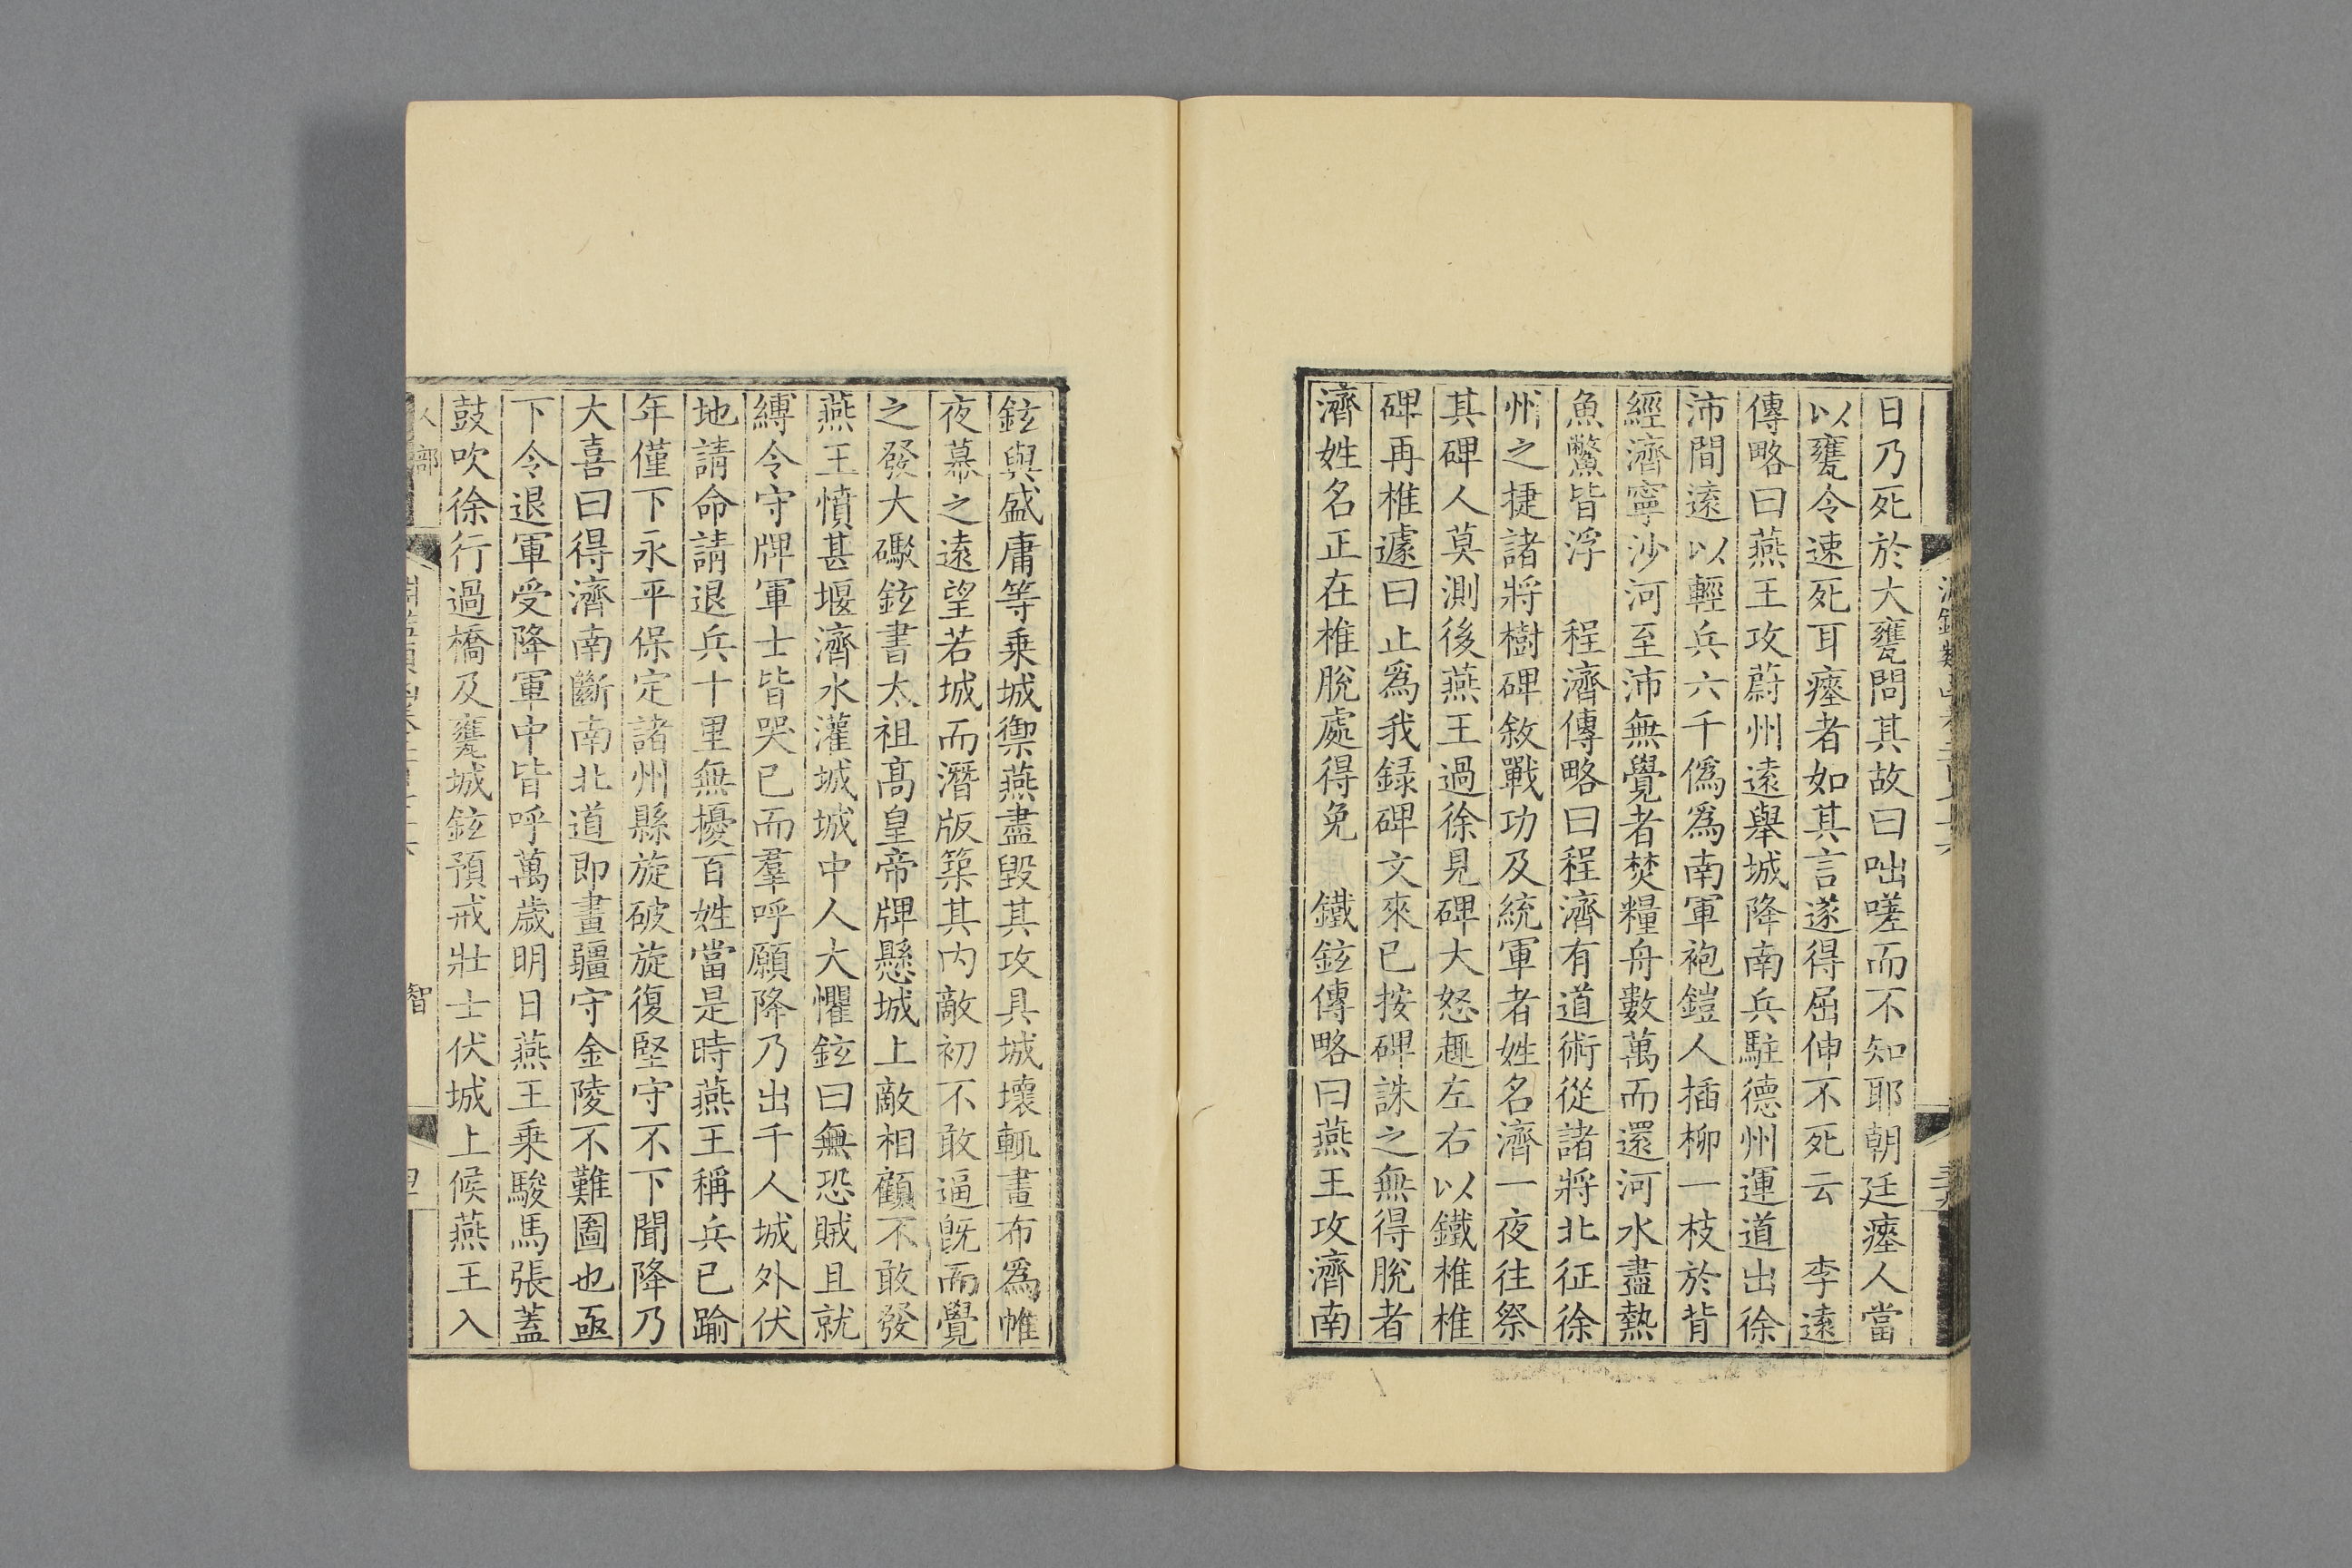 日乃死於大甕問其故曰咄嗟而不知耶朝廷瘞人當
以甕令速死耳瘞者如其言遂得屈伸不死云　李遠
傳略曰燕王攻蔚州遠舉城降南兵駐德州運道出徐
沛間遠以輕兵六千僞爲南軍袍鎧人插柳一枝於背
經濟寧沙河至沛無覺者焚糧舟數萬而還河水盡熱
魚鱉皆浮　程濟傳略曰程濟有道術從諸將北征徐
州之捷諸將樹碑敘戰功及統軍者姓名濟一夜往祭
其碑人莫測後燕王過徐見碑大怒趣左右以鐵椎椎
碑再椎遽曰止爲我録碑文來已按碑誅之無得脫者
濟姓名正在椎脫處得免　鐵鉉傳略曰燕王攻濟南
鉉與盛庸等乗城禦燕盡毀其攻具城壞輒畫布爲帷
夜幕之遠望若城而潛版築其内敵初不敢逼旣而覺
之發大礮鉉書太祖高皇帝牌懸城上敵相顧不敢發
燕王憤甚堰濟水灌城城中人大懼鉉曰無恐賊且就
縛令守牌軍士皆哭已而羣呼願降乃出千人城外伏
地請命請退兵十里無擾百姓當是時燕王稱兵已踰
年僅下永平保定諸州縣旋破旋復堅守不下聞降乃
大喜曰得濟南斷南北道即畫疆守金陵不難圖也亟
下令退軍受降軍中皆呼萬歲明日燕王乗駿馬張蓋
鼓吹徐行過橋及甕城鉉預戒壯士伏城上候燕王入
人部
智